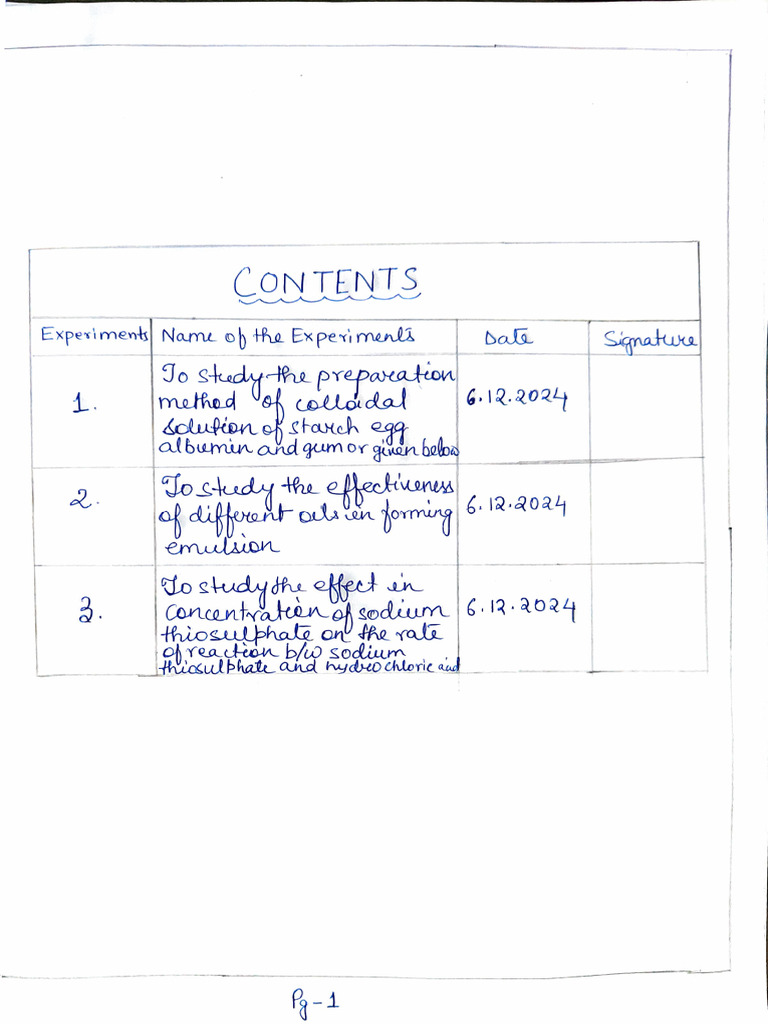 CONTENTS
Experiments Name of the Experiments Date Signature
1. To study the preparation
method of colloidal
solution of starch egg
albumin and gum or given below
6.12.2024
2. To study the effectiveness
of different oils in forming
emulsion
6.12.2024
3. To study the effect in
concentration of sodium
thiosulphate on the rate
of reaction b/w sodium
thiosulphate and hydrochloric acid
6.12.2024
Pg-1